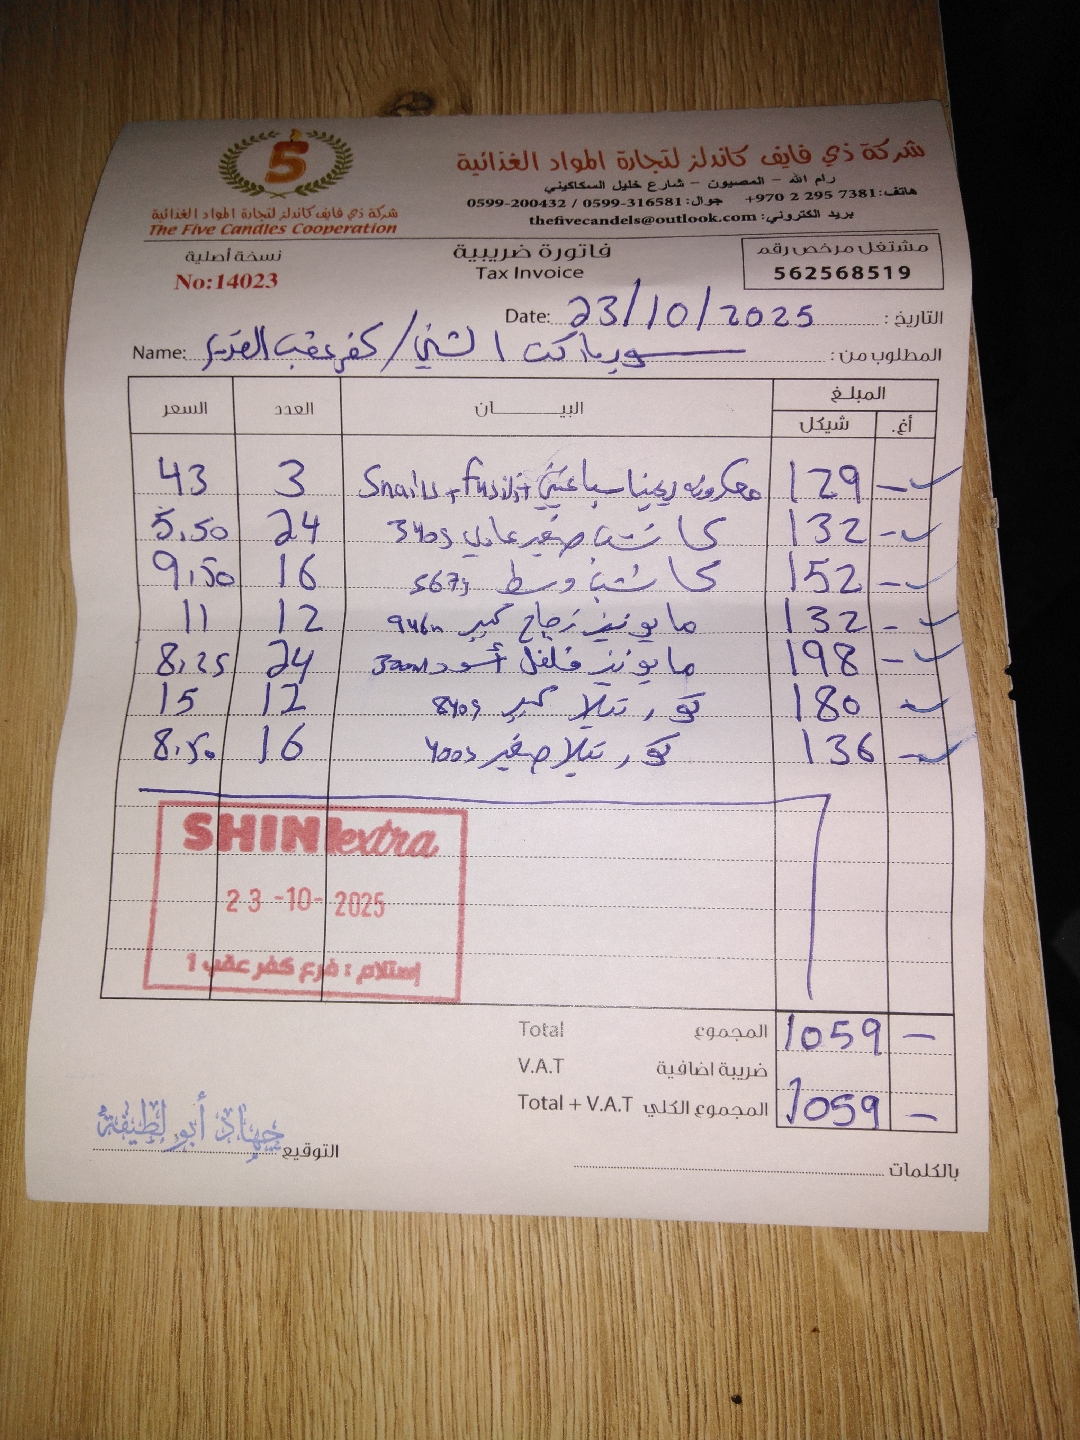 5
شركة ذي فايف كاندلز لتجارة المواد الغذائية
The Five Candles Cooperation
شركة ذي فايف كاندلز لتجارة المواد الغذائية
رام الله – المصيون – شارع خليل السكاكيني
هاتف: +970 2 295 7381 جوال: 0599-316581 / 0599-200432
بريد الكتروني: thefivecandels@outlook.com
مشتغل مرخص رقم
562568519
فاتورة ضريبية
Tax Invoice
نسخة أصلية
No:14023
التاريخ: 23/10/2025 Date:
المطلوب من: سوبرماركت الشني / كفر عقب Name:
المبلغ البيــــان العدد السعر
أغ. شيكل
- 129 معكرونه ريجينا سباغيتي + fusilli + Snails 3 43
- 132 كاتشب صغير عادي 340g 24 5.50
- 152 كاتشب وسط 567g 16 9.50
- 132 مايونيز زجاج كبير 946m 12 11
- 198 مايونيز فلفل أسود 300ml 24 8.25
- 180 نوتيلا كبير 840g 12 15
- 136 نوتيلا صغير 400g 16 8.50
SHINI extra
23 -10- 2025
إستلام : فرع كفر عقب 1
Total المجموع 1059 -
V.A.T ضريبة اضافية
Total + V.A.T المجموع الكلي 1059 -
بالكلمات
التوقيع جهاد أبو لطيفة